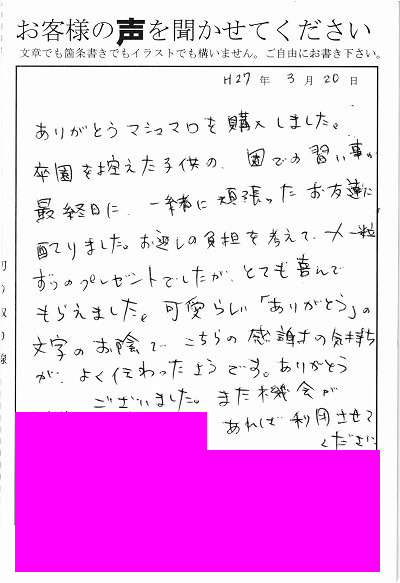 お客様の声を聞かせてください
文章でも箇条書きでもイラストでも構いません。ご自由にお書き下さい。
H27年 3月 20日
ありがとうマシュマロを購入しました。
卒園を控えた子供の、園での習い事が
最終日に、一緒に頑張ったお友達に
配りました。お返しの負担を考えて、一粒
ずつのプレゼントでしたが、とても喜んで
もらえました。可愛らしい「ありがとう」の
文字のお陰で こちらの感謝の気持ち
が、よく伝わったようです。ありがとう
ございました。また機会が
あれば利用させて
ください
切り取り線